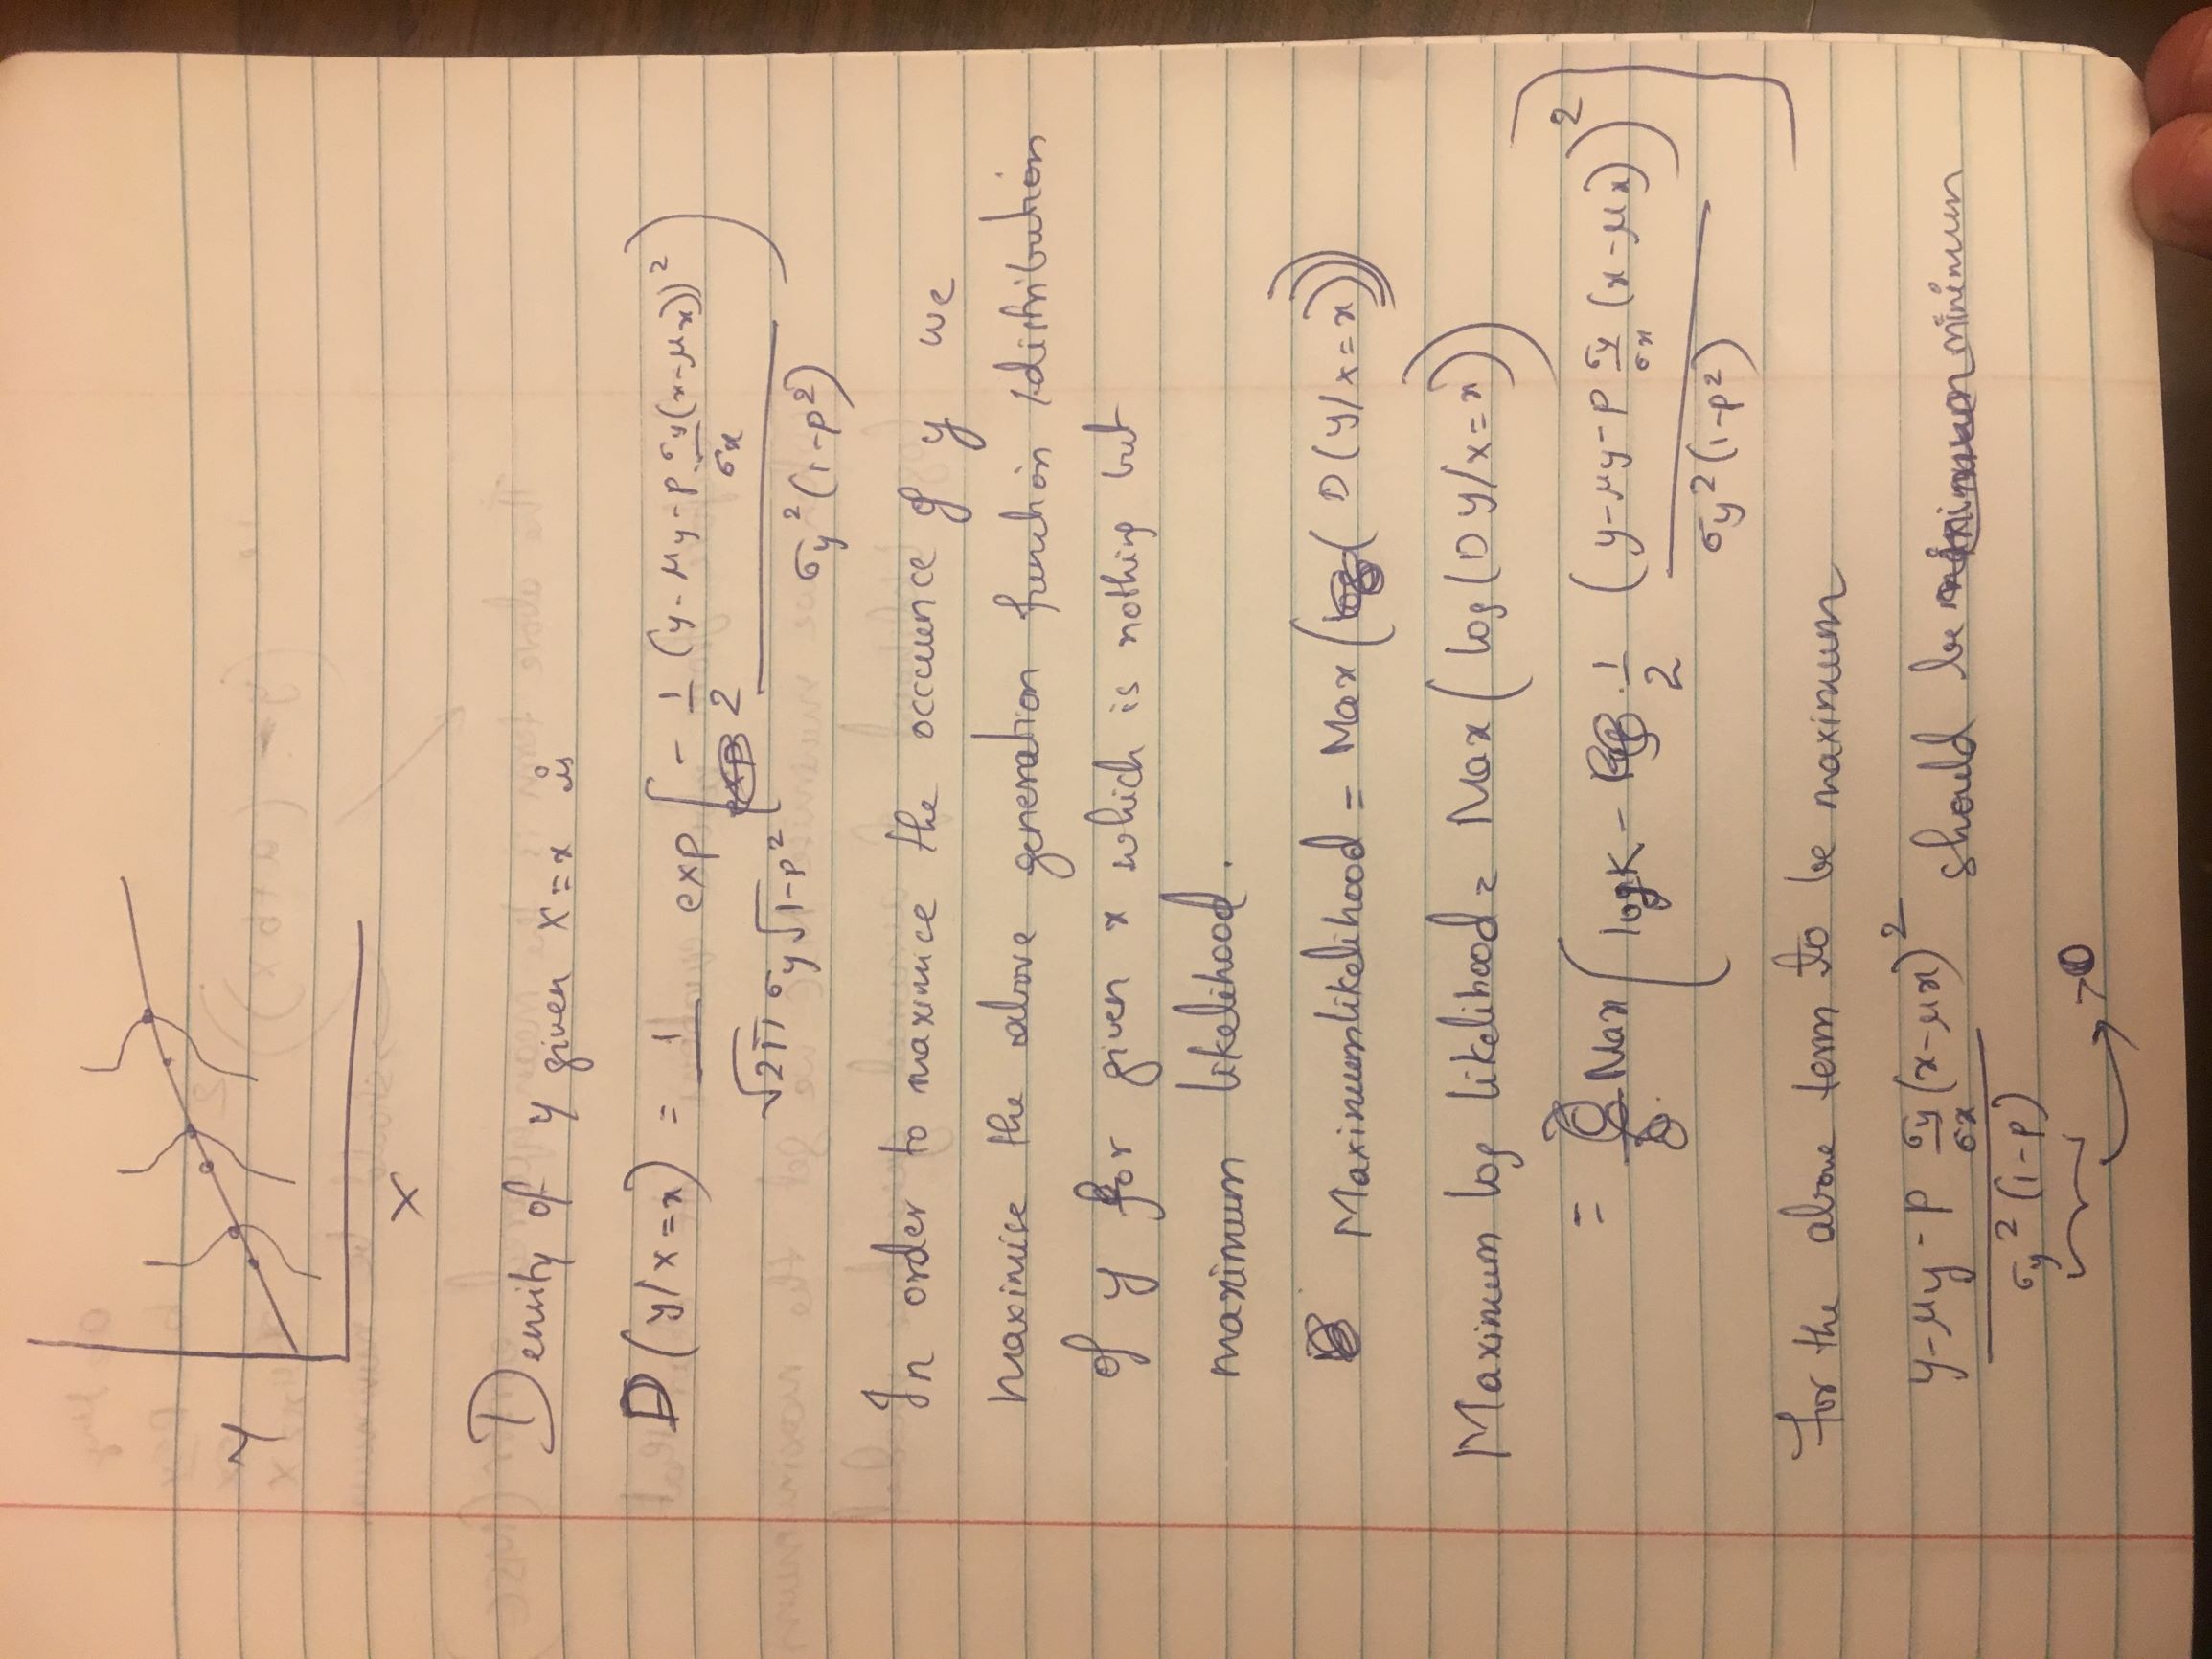 Y
X
Density of y given X=x is
D(y/x=x) = 1/(√2π σy√1-p²) exp[-1/2 (y-μy-p σy/σx(x-μx))²/(σy²(1-p²))]
In order to maximise the occurence of y we
maximise the above generation function / distribution
of y for given x which is nothing but
maximum likelihood.
Maximumlikelihood = Max((D(y/x=x)))
Maximum log likelihood = Max(log(D y/x=x))
= Max(log K - 1/2 (y-μy-p σy/σx (x-μx))²/(σy²(1-p²))]
For the above term to be maximum
y-μy-p σy/σx(x-μx)²/(σy²(1-p)) should be minimum
>0